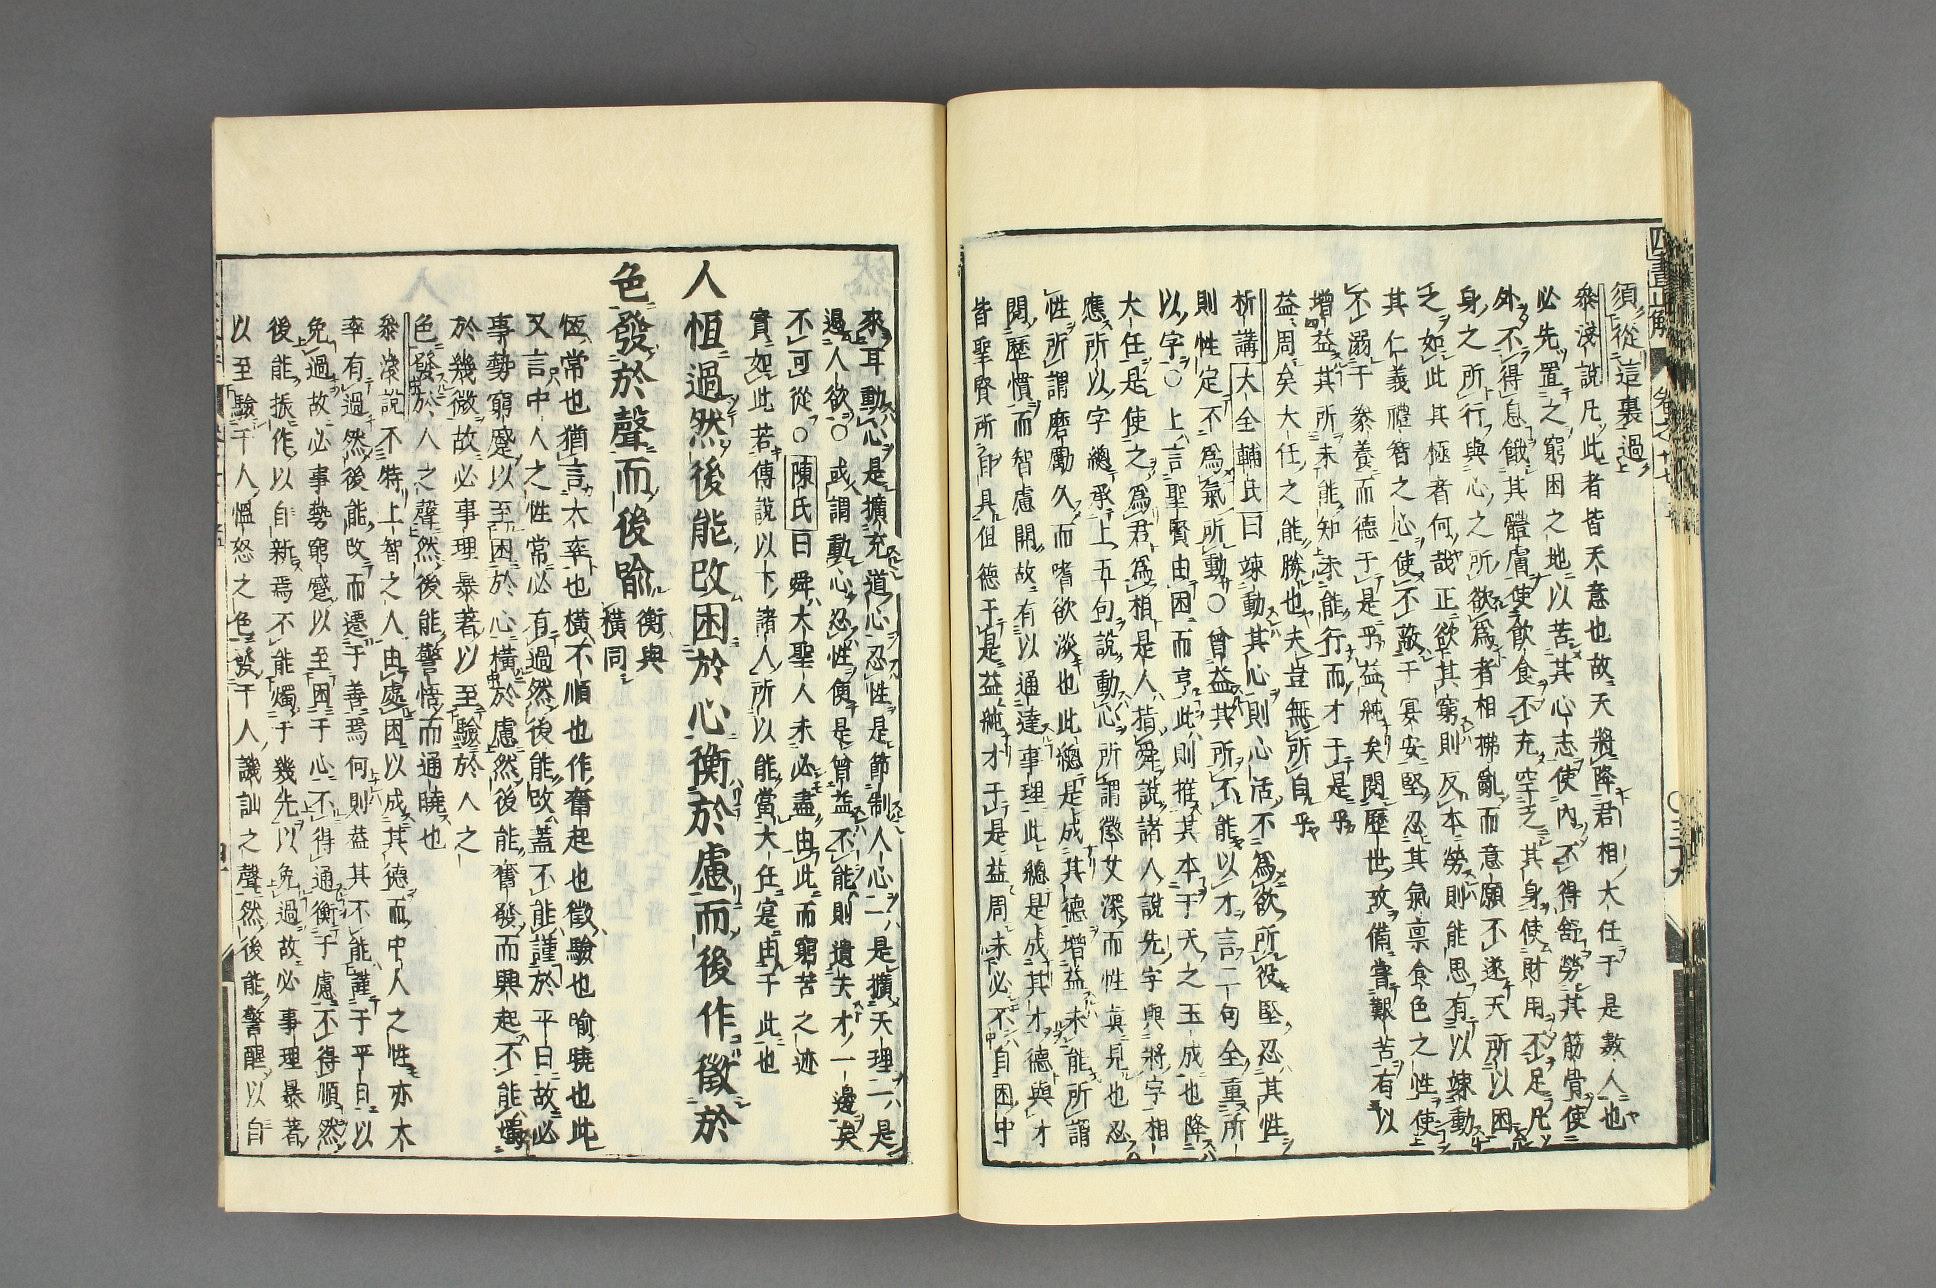 須從這裏過
叅淺說凡此者皆天意也故天將降君相大任于是數人也
必先置之窮困之地以苦其心志使內不得舒勞其筋骨使
外不得息餓其體膚使飲食不充空乏其身使財用不足凡
身之所行與心之所欲為者相拂亂而意願不遂天所以困
乏如此其極者何哉正欲其窮則反本勞則能思有以竦動
其仁義禮智之心使不蔽于宴安堅忍其氣禀食色之性使
不溺于豢養而德于是乎益純矣閱歷世故備嘗艱苦有以
增益其所未能知未能行而才于是乎
益周矣大任之能勝也夫豈無所自乎
析講大全輔氏曰竦動其心則心活不為欲所役堅忍其性
則性定不為氣所動○曾益其所不能以才言二句全重所
以字○上言聖賢由困而亨此則推其本于天之玉成也降
大任是使之為君為相是人指舜說諸人說先字與將字相
應所以字總承上五句說動心所謂懲艾深而性眞見也忍
性所謂磨勵久而嗜欲淡也此總是成其德增益未能所謂
閱歷慣而智慮開故有以通達事理此總是成其才德與才
皆聖賢所自具但德于是益純才于是益周未必不自困中
來耳動心是擴充道心忍性是節制人心二八是擴天理二八是
遏人欲○或謂動心忍性便是曾益不能則遺夫才一邊矣
不可從○陳氏曰舜大聖人未必盡由此而窮苦之迹
實如此若傳說以下諸人所以能當大任寔由于此也
人恒過然後能改困於心衡於慮而後作徵於
色發於聲而後喻衡與橫同
恆常也猶言大率也橫不順也作奮起也徵驗也喻曉也此
又言中人之性常必有過然後能改蓋不能謹於平日故必
事勢窮蹙以至困於心橫於慮然後能奮發而興起不能燭
於幾微故必事理暴著以至驗於人之
色發於人之聲然後能警悟而通曉也
叅淺說不特上智之人由處困以成其德而中人之性亦大
率有過然後能改而遷于善焉何則葢其不能謹于平日以
免過故必事勢窮蹙以至困于心不得通衡于慮不得順然
後能振作以自新焉不能燭于幾先以免過故必事理暴著
以至驗于人慍怒之色發于人譏訕之聲然後能警醒以自
四書正解
卷之十七
○三十九